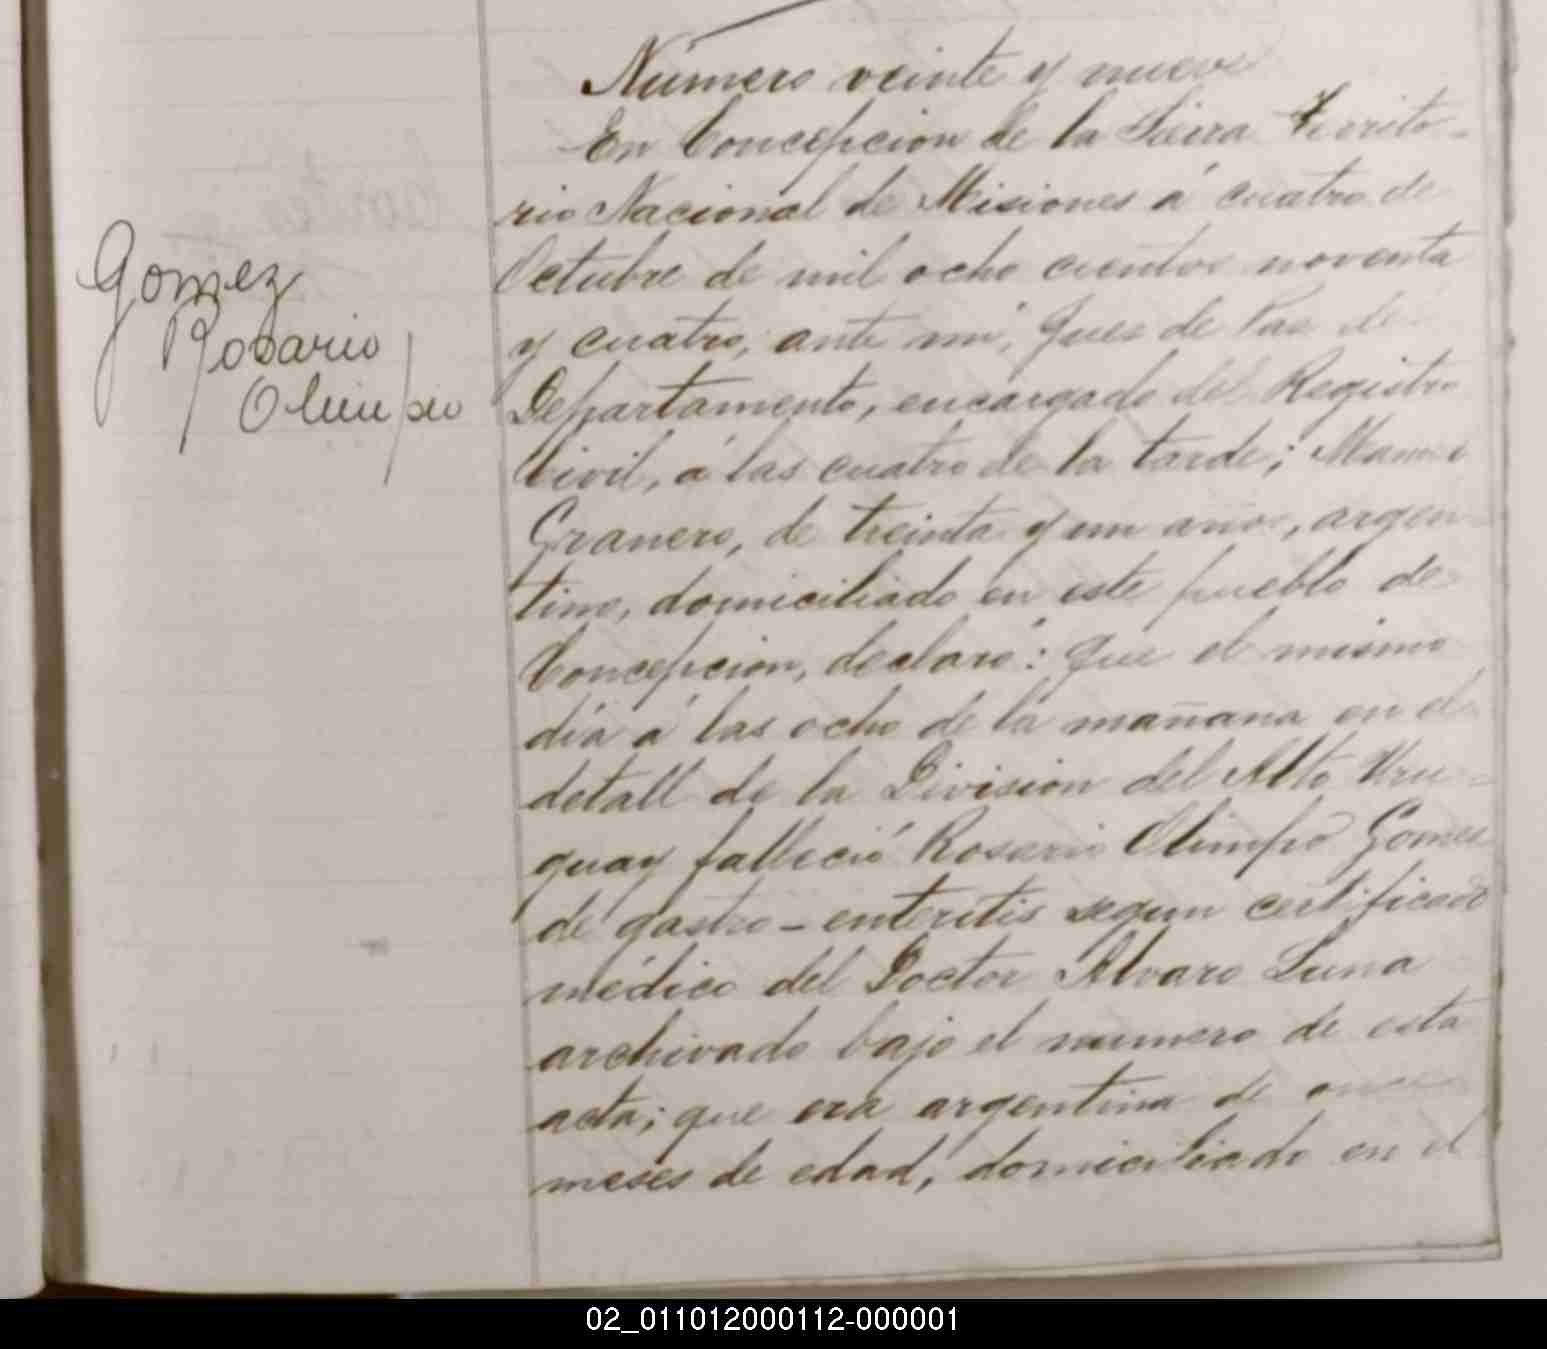 Número veinte y nueve
En Concepcion de la Sierra Territo-
rio Nacional de Misiones á cuatro de
Gomez
Octubre de mil ocho cientos noventa
Rosario
y cuatro, ante mi, Juez de Paz del
Olimpio
Departamento, encargado del Registro
Civil, á las cuatro de la tarde; Manuel
Granero, de treinta y un años, argen-
tino, domiciliado en este pueblo de
Concepcion, declaró: Que el mismo
día á las ocho de la mañana en el
detall de la Division del Alto Uru-
guay falleció Rosario Olimpio Gomez
de gastro-enteritis segun certificado
médico del Doctor Alvaro Luna
archivado bajo el numero de esta
acta; que era argentina de once
meses de edad, domiciliado en el
02_011012000112-000001